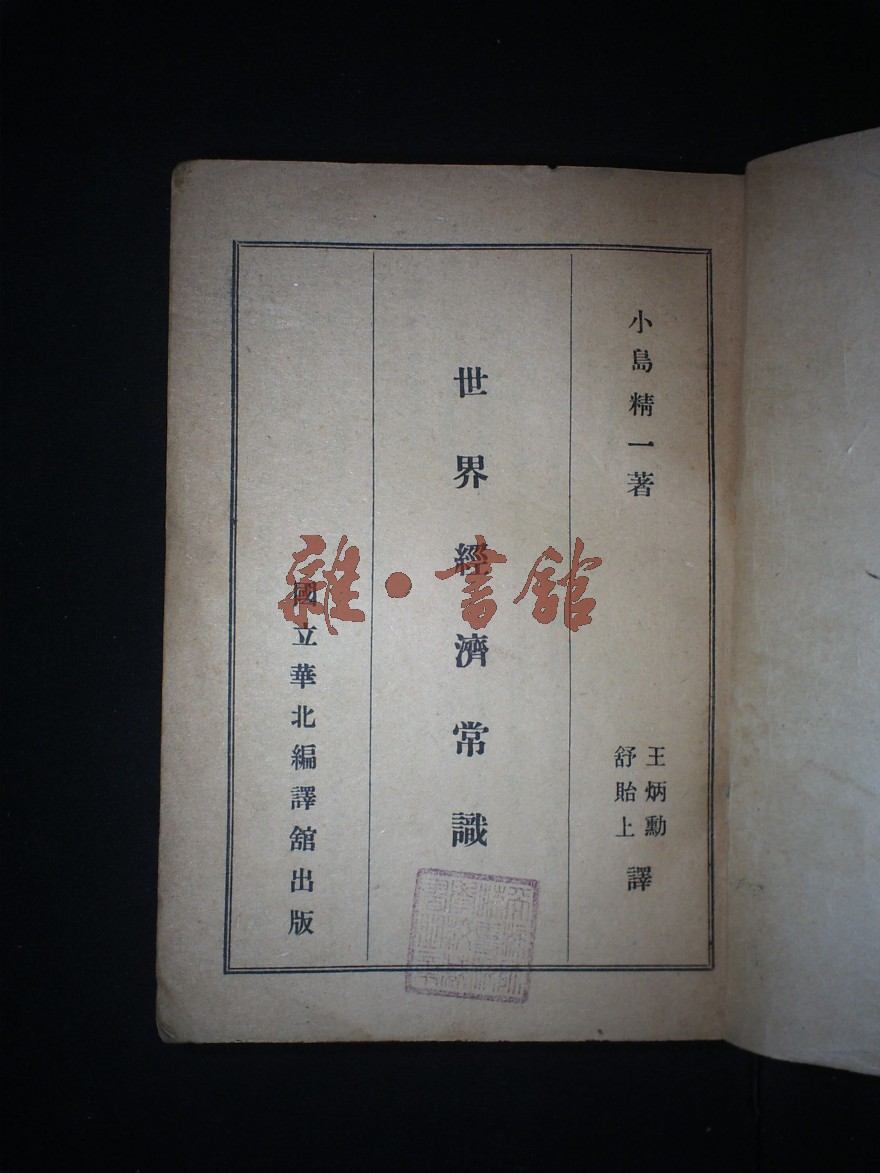 小島精一著
王炳勳
舒貽上
譯
世界經濟常識
國立華北編譯舘出版
雜·書舘